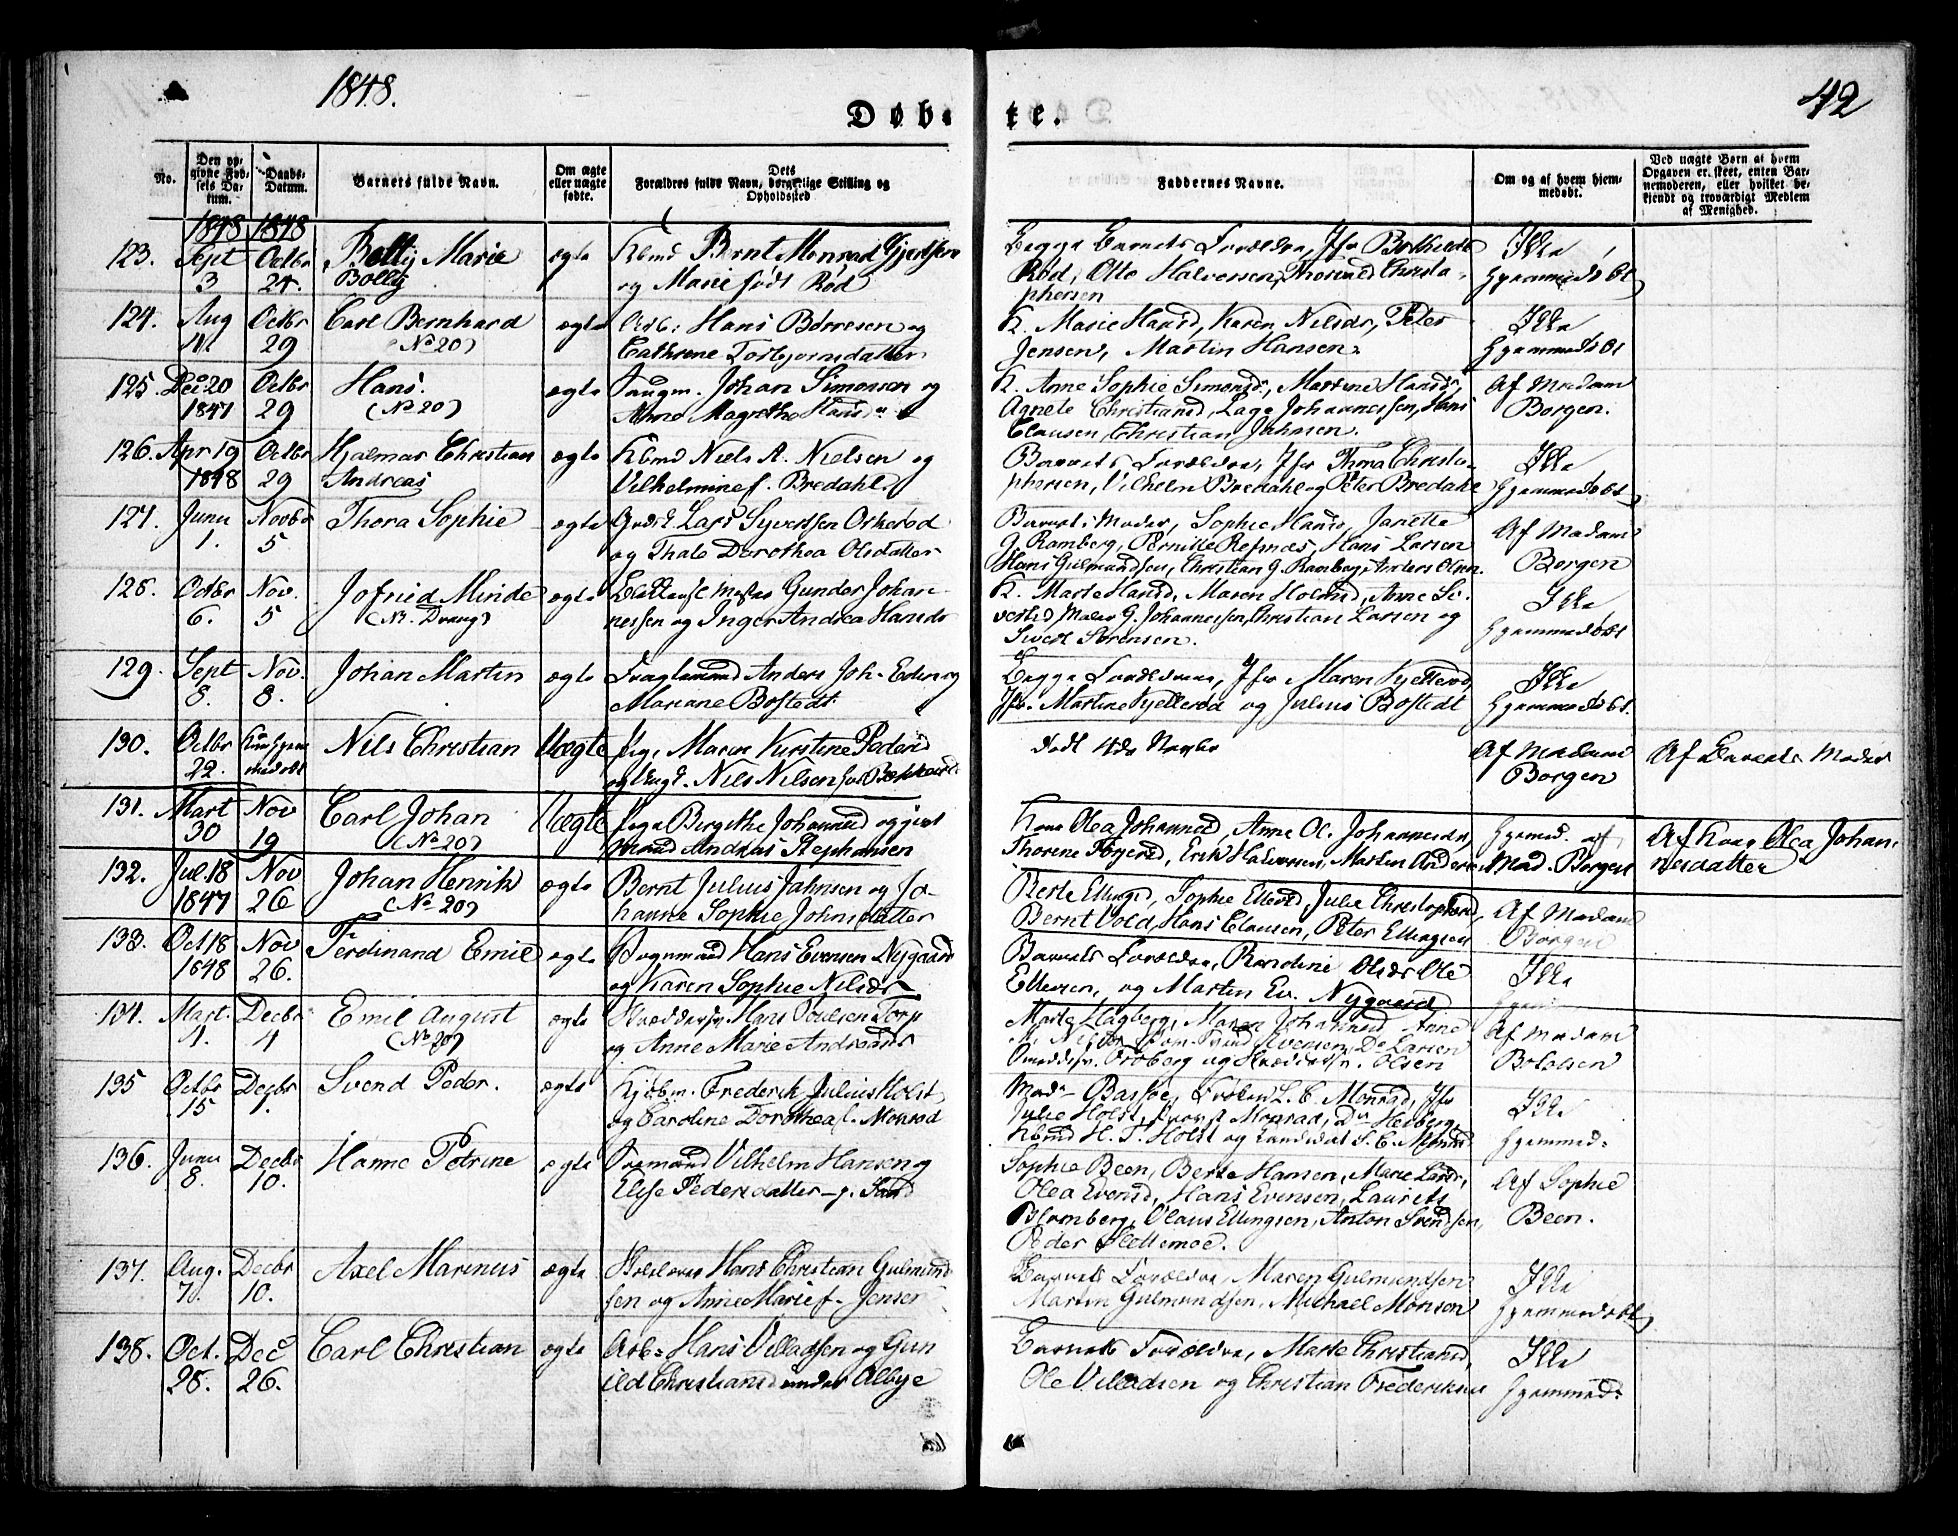 1848.
42
Døbte.
No.
Den opgivne Fødsels Datum.
Daabs-Datum.
Barnets fulde Navn.
Om ægte eller uægte fødte.
Dets Forældres fulde Navn, borgerlige Stilling og Opholdssted
Faddernes Navne.
Om og af hvem hjemmedøbt.
Ved uægte Børn af hvem Opgaven er skeet, enten Barnemoderen, eller hvilket bekjendt og troværdigt Medlem af Menighed.
1848 1848
123. Sept Octbr Betty Marie ægte Kbmd Bernt Monrad Gjerdsen Begge Barnets Forældre, Jfr Bothilde Ikke
3 24. Bolly og Marie født Rød Rød, Otto Halvorsen, Thorvald Christo- hjemmedøbt
phersen
124. Aug Octbr Carl Bernhard ægte Arb: Hans Børresen og K. Marie Hansd, Karen Nilsdr, Peter Ikke
11 29 (No 20) Cathrine Torbjørnsdatter Jensen, Martin Hansen. hjemmedøbt
125. Dec 20 Octbr Hans. ægte Johan Simonsen og K. Anne Sophie Simonsd, Martine Hansdr, Af Madam
1847 29 (No 20) Anne Magrethe Hans Agnete Christiansd, Lage Johannessen, Hans Borgen.
Clausen, Christian Jahnsen.
126. Apr 19 Octbr Hjalmar Christian ægte Kbmd Niels A. Nielsen og Barnets Forældre, Jfr Thora Christo- Ikke
1848 29 Andreas Vilhelmine f. Bredahl phersen, Vilhelm Bredahl og Peter Bredahl hjemmedøbt
127. Juni Novbr Thora Sophie ægte Lars Syvertsen Orkerød Barnets Moder, Sophie Hansd, Janette Af Madam
1. 5 og Thale Dorothea Olsdatter G. Ramberg, Pernille Refnes, Hans Larsen Borgen
Hans Gulmundsen, Christian G. Ramberg, Anders Olsen.
128. Octbr Nov. Jofried Minde ægte Gunder Johan- K. Marte Hansd, Maren Holmsd, Anne Si- Ikke
6. 5 (No. Draug) nessen og Inger Andrea Hansdr vertsd, G. Johannessen, Christian Larsen og hjemmedøbt
Sivert Sørensen.
129. Sept Nov. Johan Martin ægte Fragtemand Anders Joh. Edin og Begge Forældrene, Jfr Maren Kjellerød Ikke
8. 8. Mariane Bostedt Jfr. Martine Kjellerød og Julius Bostedt hjemmedøbt.
130. Octbr Kun hjemmedøbt Nils Christian Uægte Pige Maren Kirstine Pedersd død 4de Novbr Af Madam Af Barnets Moder
22. og Ungk. Nils Nilsen Borgen
131. Mart Nov Carl Johan Uægte Pige Bergithe Johannesd og givt Kone Olea Johannesd, Anne Ol. Johannesdr, Hjemmed. af Af Kone Olea Johan-
30 19 (No 20) Mand Andreas Stephansen Thorine Torgersd, Erik Halvorsen, Martin Anders Mad. Borgen nesdatter
132. Jul. 18 Nov Johan Henrik ægte Bernt Julius Jahnsen og Jo- Berte Ellingsd, Sophie Ellevsd, Julie Christophersd, Af Madam
1847 26 (No 20) hanne Sophie Johnsdatter Bernt Vold, Hans Clausen, Peter Ellingsen Borgen
133. Oct 18 Nov Ferdinand Emil ægte Vognmand Hans Evensen Nygaard Barnets Forældre, Karoline Olsdr Ole Ikke
1848 26. og Karen Sophie Nilsdr Ellevsen, og Martin Ev. Nygaard
134. Mart. Decbr Emil August ægte Skræddersv. Hans Poulsen Torp Marte Hagberg, Maren Johannesd Anne Af Madam
1. 4 (No 20) og Anne Marie Andreasdr Evensen, Do Larsen Boldsen
Froberg og Skræddersv. Olsen
135 Octbr Decbr Svend Peder. ægte Kjøbm. Frederik Julius Holst Mad. Bassøe, Frøken L. C. Monrad, Jfr Ikke
15 1. og Caroline Dorothea f. Monrad Julie Holst, Monrad, Dr Hedberg, hjemmed.
Kbmd H. T. Holst og Candidat S. C. Monrad
136. Juni Decbr Hanne Petrine ægte Sømand Vilhelm Hansen og Sophie Been, Berte Hansen, Marie Larsdr, Af Sophie
8. 10. Elise Pedersdatter Olea Evensd, Hans Evensen, Laurits Been.
Blomberg, Olaus Ellingsen, Anton Svendsen,
Peder Slettemoe.
137. Aug. Decbr Axel Marinus ægte Hans Christian Gulmund- Barnets Forældre, Maren Gulmundsen Ikke
7. 10. sen og Anne Marie f. Jensen Martin Gulmundsen, Michael Monsen hjemmedøbt
138. Oct. Dec Carl Christian ægte Arb. Hans Villadsen og Gun- Barnets Forældre, Marte Christiansd, Ikke
28. 26. ild Christiansd under Alby Ole Villadsen og Christian Frederiksen hjemmed.